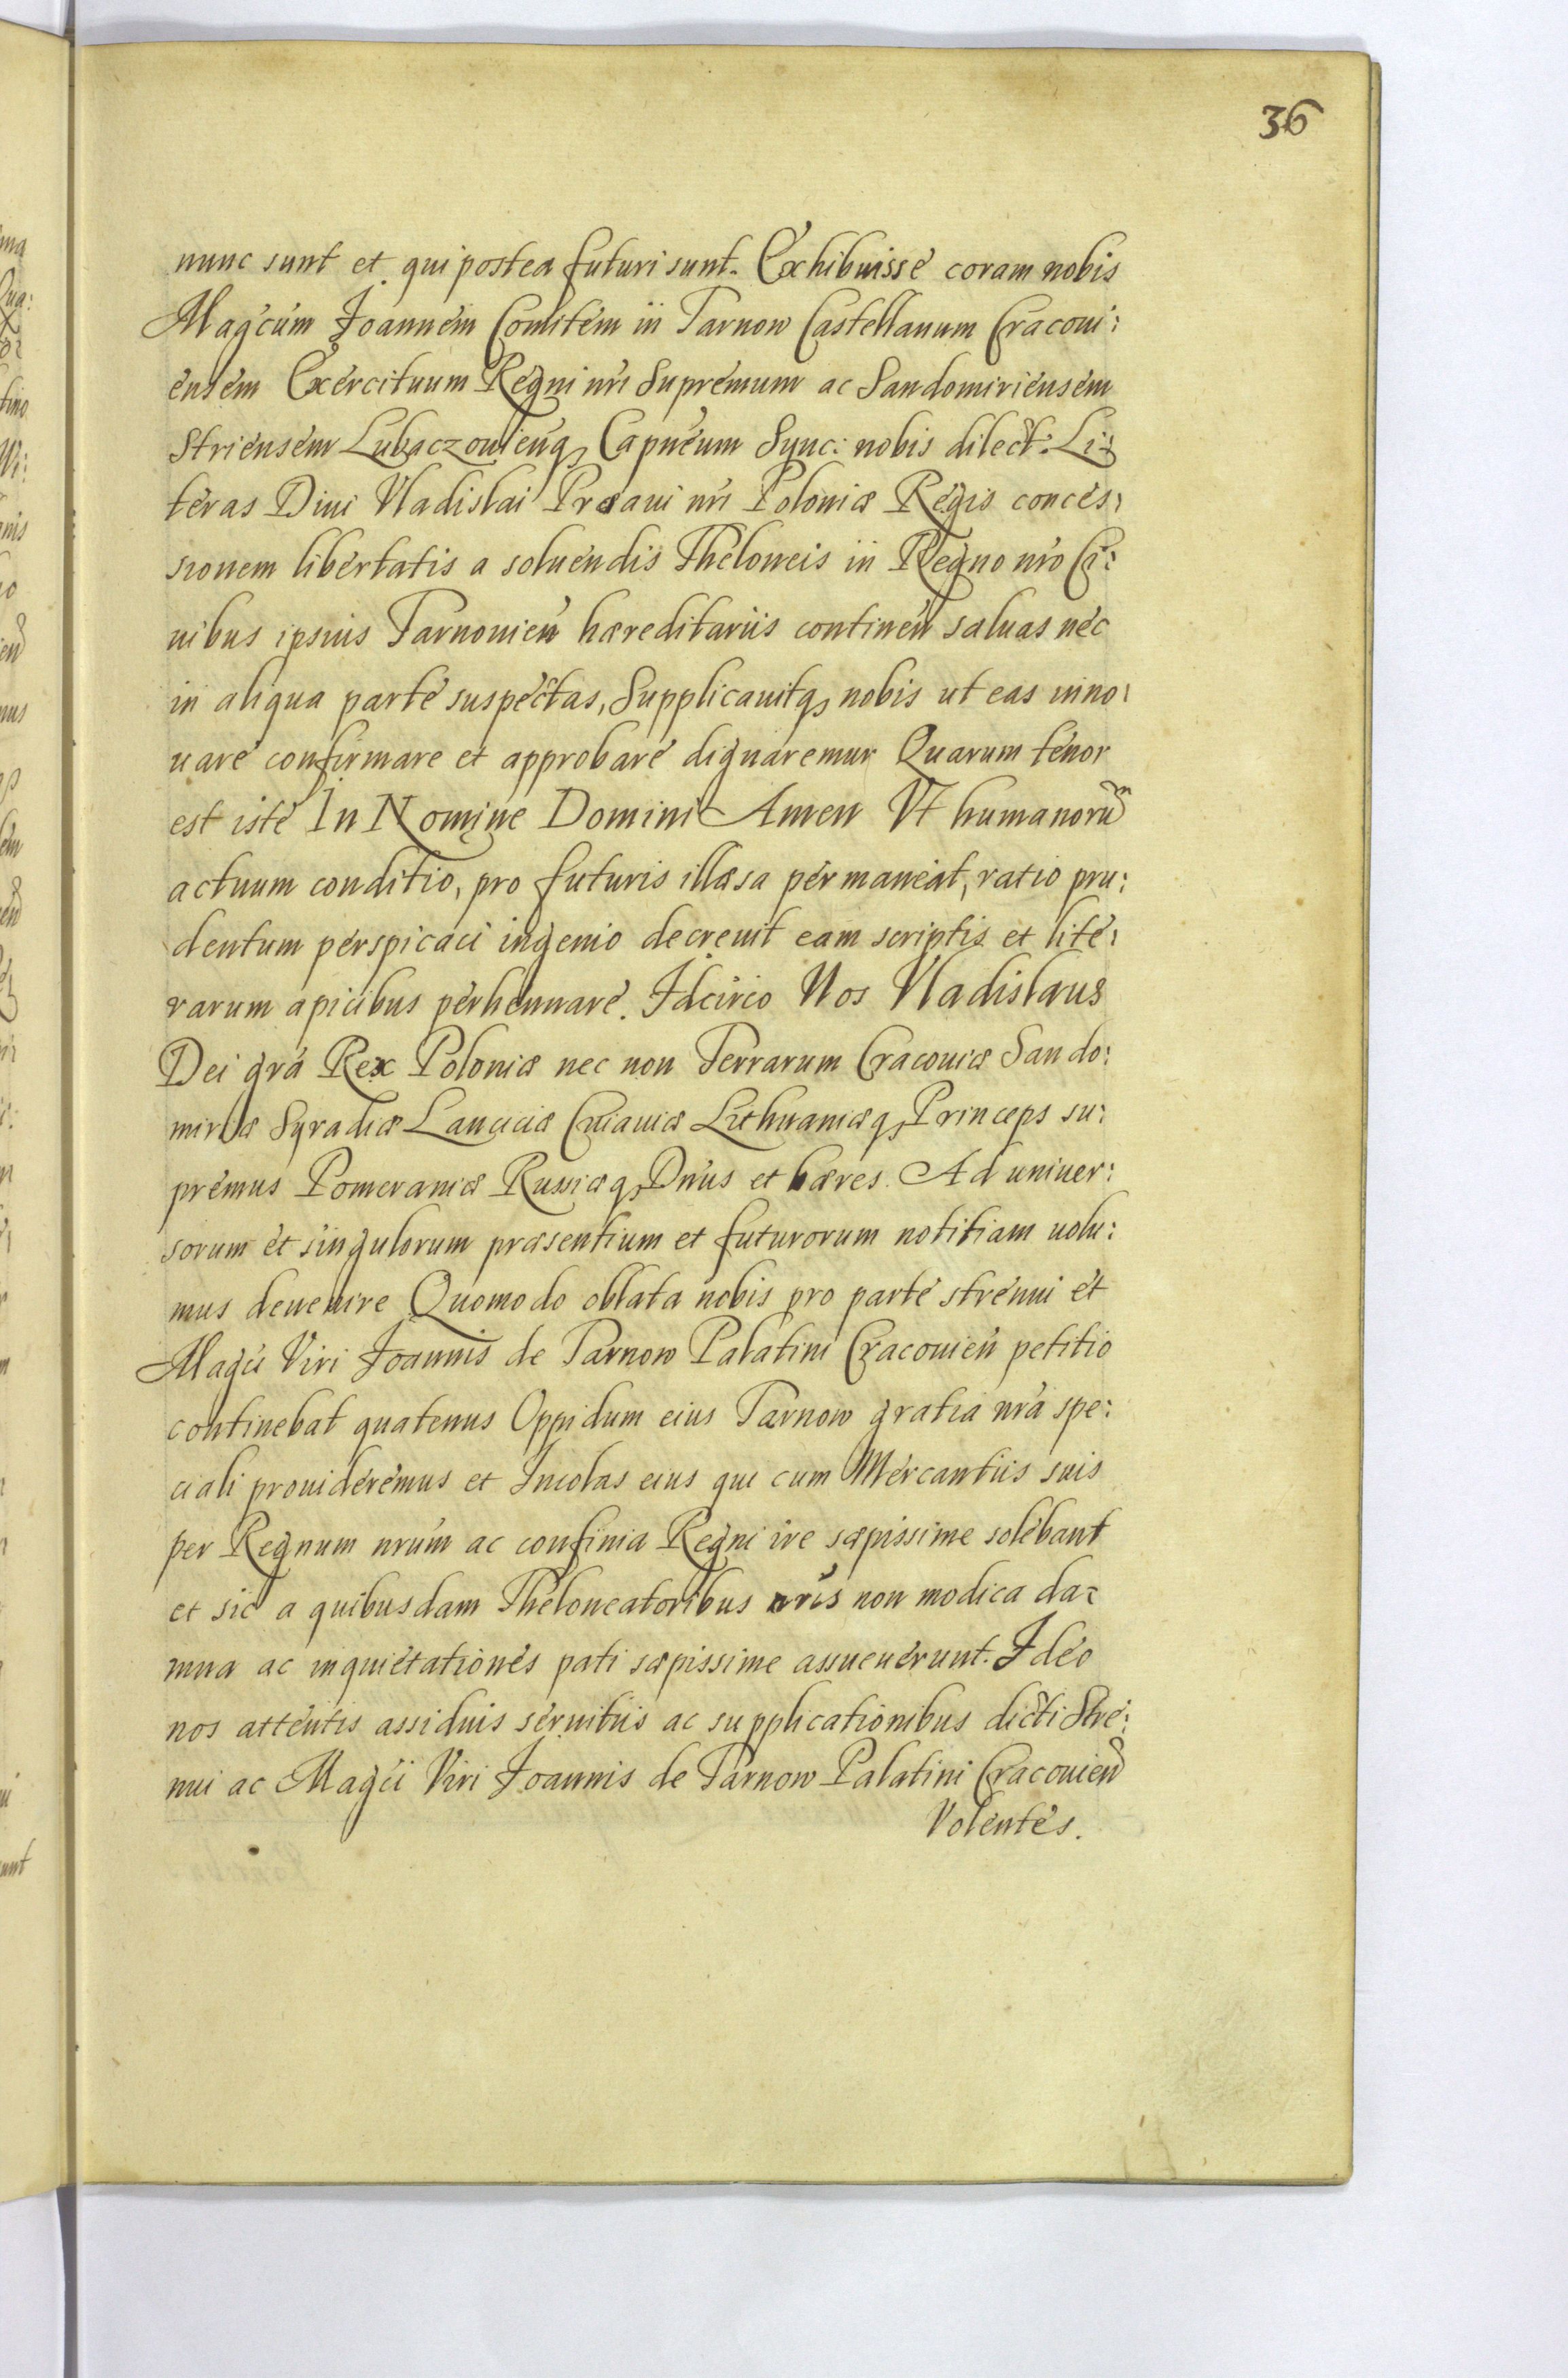 36
nunc sunt et qui postea futuri sunt. Exhibuisse coram nobis
Magcum Joannem Comitem in Tarnow Castellanum Cracoui:
ensem Exercituum Regni nri Supremum ac Sandomiriensem
Striensem Lubaczouienq, Capneum Sync: nobis dilect: Li:
teras Diui Vladislai Praeaui nri Poloniæ Regis conces:
sionem libertatis a soluendis Theloneis in Regno nro Ci:
uibus ipsius Tarnouien hæreditariis continen saluas nec
in aliqua parte suspectas, Supplicauitq, nobis ut eas inno:
uare confirmare et approbare dignaremur Quarum tenor
est iste In Nomine Domini Amen Vt humanorũ
actuum conditio, pro futuris illæsa permaneat, ratio pru:
dentum perspicaci ingenio decreuit eam scriptis et lite:
rarum apicibus perhennare. Idcirco Nos Vladislaus
Dei gra Rex Poloniæ nec non Terrarum Cracouiæ Sando:
miriæ Syradiæ Lanciciæ Cuiauiæ Lithuaniæq, Princeps su:
premus Pomeraniæ Russiæq, Dnus et hæres. Ad uniuer:
sorum et singulorum præsentium et futurorum notitiam uolu:
mus deuenire Quomodo oblata nobis pro parte strenui et
Magci Viri Joannis de Tarnow Palatini Cracouien petitio
continebat quatenus Oppidum eius Tarnow gratia nra spe:
ciali prouideremus et Incolas eius qui cum Mercantiis suis
per Regnum nrum ac confinia Regni ire sæpissime solebant
et sic a quibusdam Theloneatoribus nris non modica da:
mna ac inquietationes pati sæpissime assueuerunt. Ideo
nos attentis assiduis seruitiis ac supplicationibus dicti Stre:
nui ac Magci Viri Joannis de Tarnow Palatini Cracouien
Volentes.